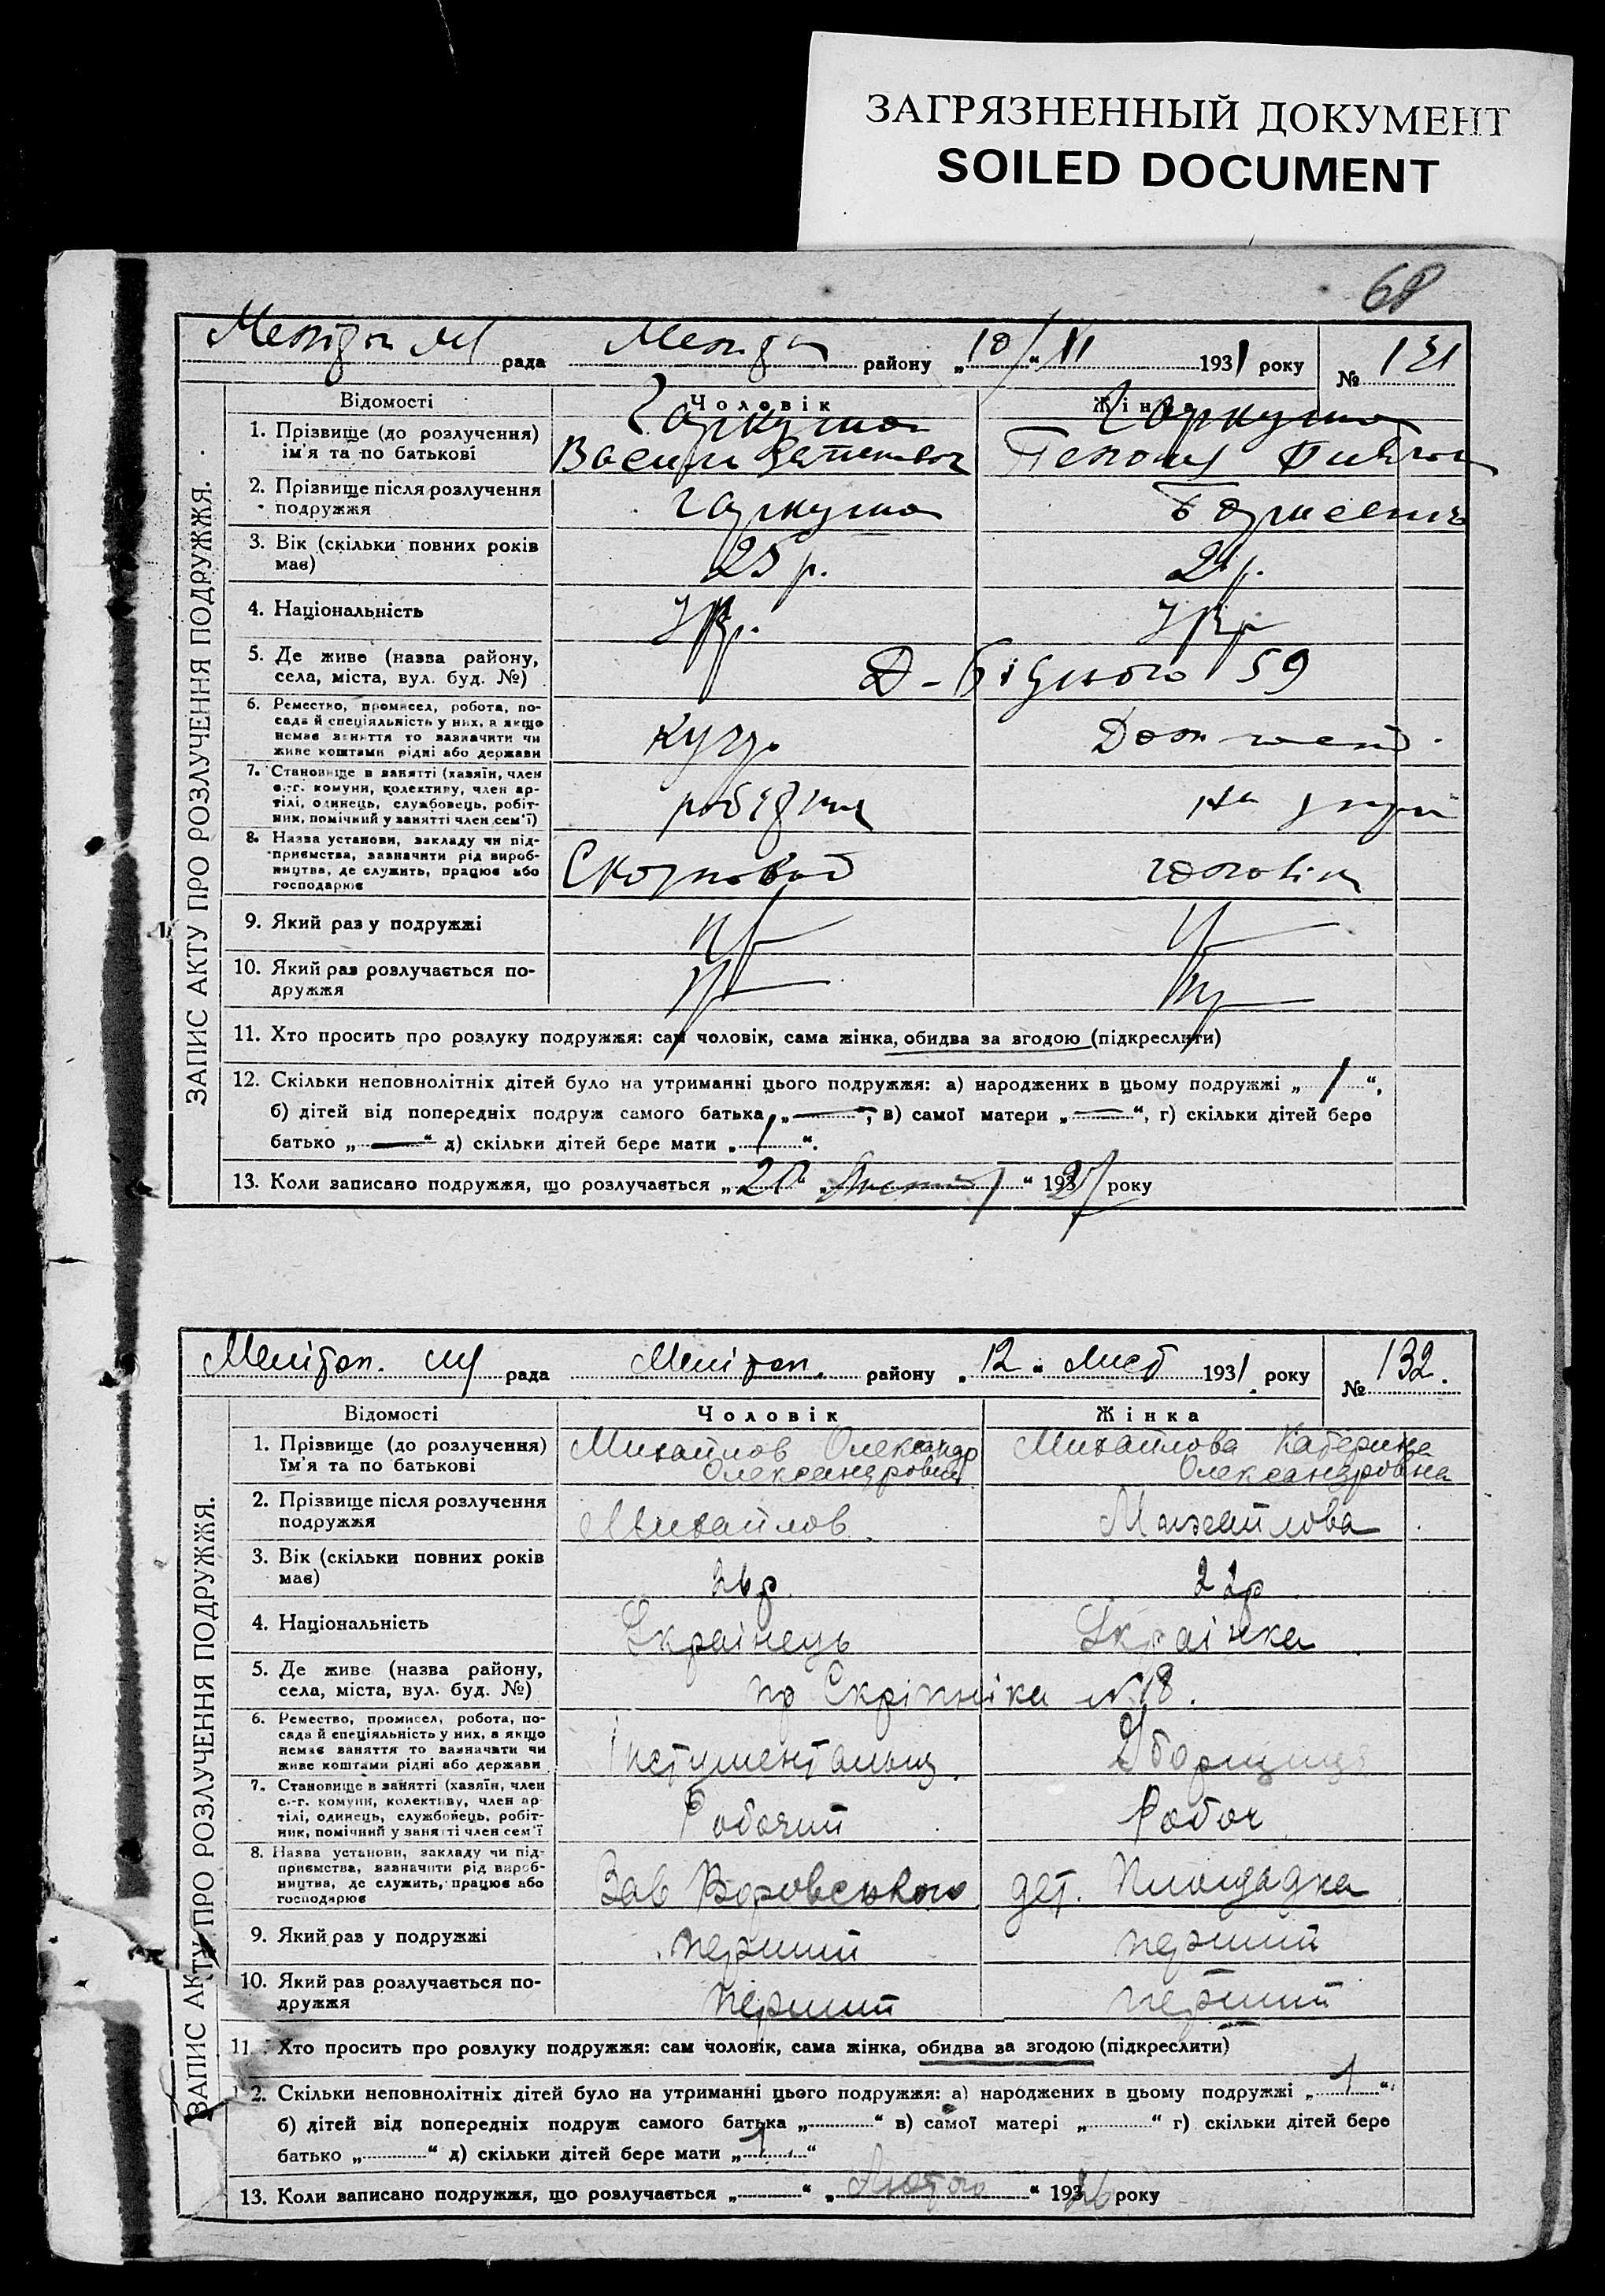 ЗАГРЯЗНЕННЫЙ ДОКУМЕНТ
SOILED DOCUMENT
68
рада району 193 1 року № 131
ЗАПИС АКТУ ПРО РОЗЛУЧЕННЯ ПОДРУЖЖЯ.
Відомості Чоловік Жінка
1. Прізвище (до розлучення) Гаркуша Гаркуша
ім'я та по батькові Василь
2. Прізвище після розлучення
подружжя Гаркуша
3. Вік (скільки повних років
має) 25 р.
4. Національність Укр. Укр
5. Де живе (назва району,
села, міста, вул. буд. №) Д-Бідного 59
6. Ремество, промисел, робота, по-
сада й спеціяльність у них, а якщо
немає заняття то зазначити чи
живе коштами рідні або держави
7. Становище в занятті (хазяїн, член
с.-г. комуни, колективу, член ар-
тілі, одинець, службовець, робіт-
ник, помічний у занятті член сем'ї)
8. Назва установи, закладу чи під-
приємства, зазначити рід вироб-
ництва, де служить, працює або
господарює
9. Який раз у подружжі
10. Який раз розлучається по-
дружжя
11. Хто просить про розлуку подружжя: сам чоловік, сама жінка, обидва за згодою (підкреслити)
12. Скільки неповнолітніх дітей було на утриманні цього подружжя: а) народжених в цьому подружжі „ 1 “,
б) дітей від попередніх подруж самого батька „ — “, в) самої матери „ — “, г) скільки дітей бере
батько „ — “ д) скільки дітей бере мати „ 1 “.
13. Коли записано подружжя, що розлучається року
Мелітоп. рада Мелітоп. району „ 12 “ Лист 193 1 року № 132.
ЗАПИС АКТУ ПРО РОЗЛУЧЕННЯ ПОДРУЖЖЯ.
Відомості Чоловік Жінка
1. Прізвище (до розлучення) Михайлов Олександр Михайлова Катерина
ім'я та по батькові Олександрович Олександровна
2. Прізвище після розлучення
подружжя Михайлов Михайлова
3. Вік (скільки повних років
має) 26 р 22 р
4. Національність Українець Українка
5. Де живе (назва району,
села, міста, вул. буд. №) пр Скріпніка № 18.
6. Ремество, промисел, робота, по-
сада й спеціяльність у них, а якщо
немає заняття то зазначати чи
живе коштами рідні або держави
7. Становище в занятті (хазяїн, член
с.-г. комуни, колективу, член ар-
тілі, одинець, службовець, робіт-
ник, помічний у занятті член сем'ї Робочий Робоч
8. Назва установи, закладу чи під-
приємства, зазначити рід вироб-
ництва, де служить, працює або
господарює Зав Воровського дет. площадка
9. Який раз у подружжі перший перший
10. Який раз розлучається по-
дружжя перший перший
11. Хто просить про розлуку подружжя: сам чоловік, сама жінка, обидва за згодою (підкреслити)
12. Скільки неповнолітніх дітей було на утриманні цього подружжя: а) народжених в цьому подружжі „ 1 “
б) дітей від попередніх подруж самого батька „ “ в) самої матері „ “ г) скільки дітей бере
батько „ “ д) скільки дітей бере мати „ 1 “
13. Коли записано подружжя, що розлучається „ “ „ Лютого “ року